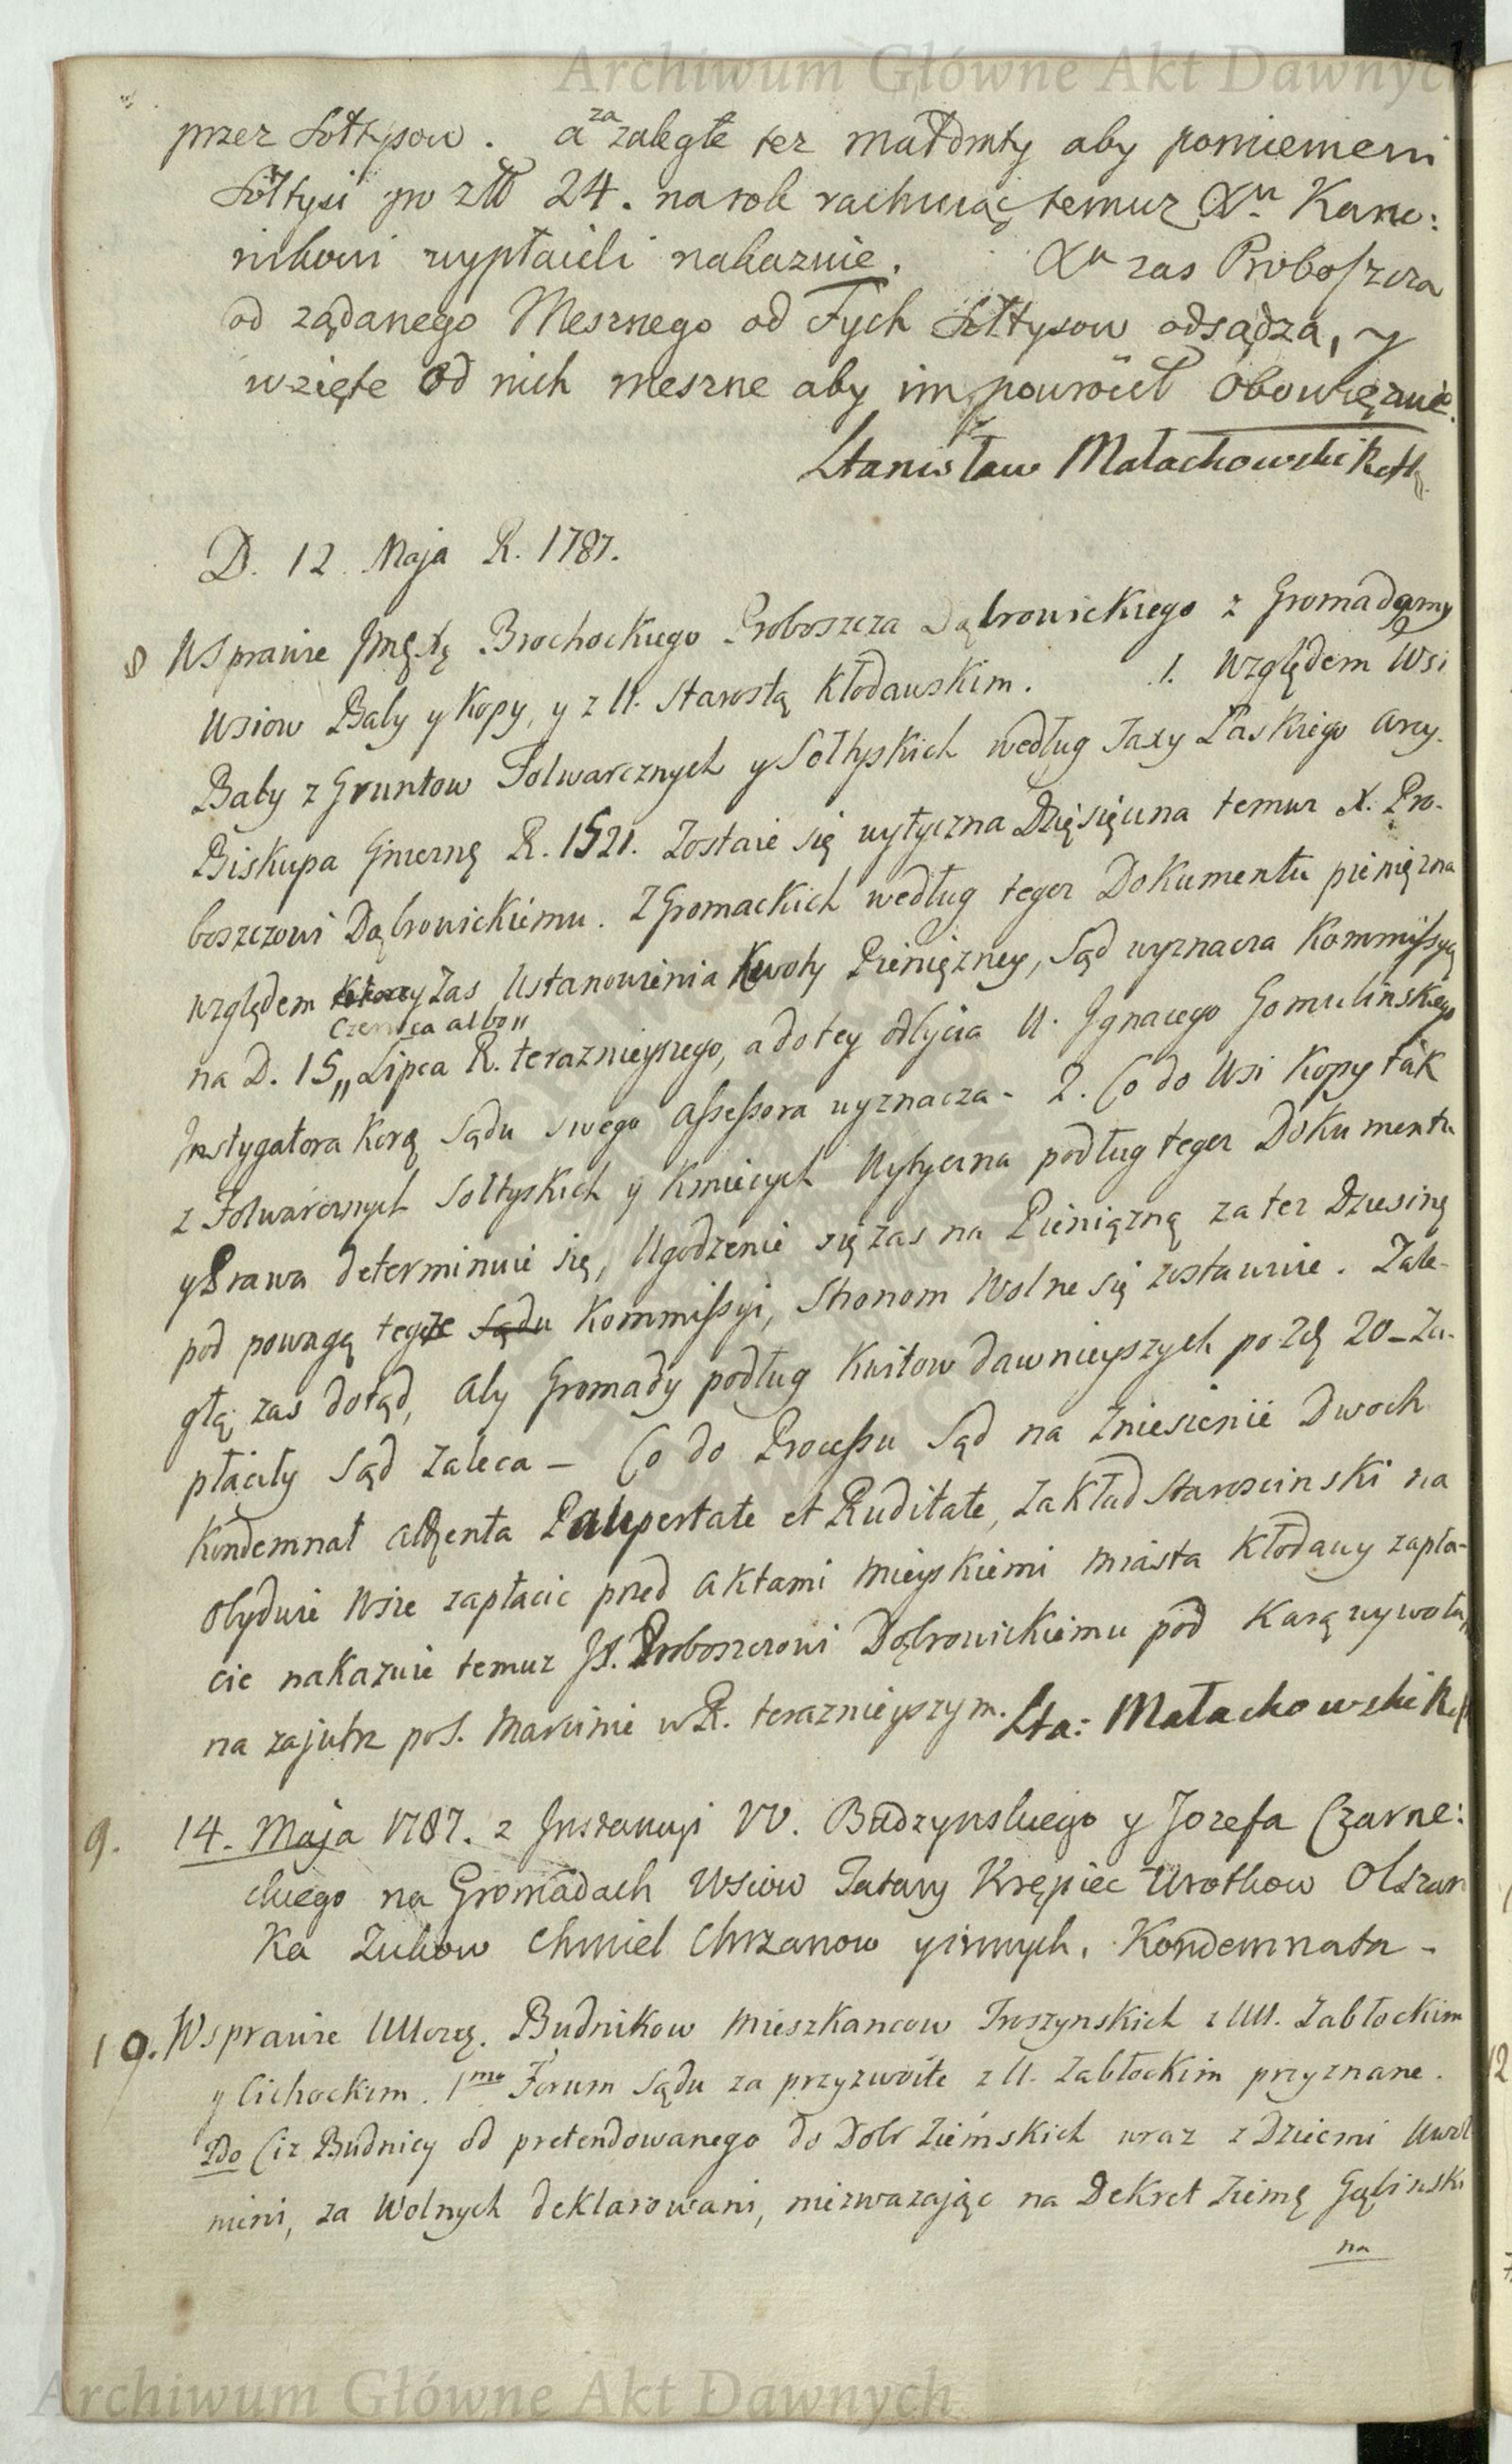 Archiwum Główne Akt Dawnych
przez Sołtysow. a za zaległe tez małdraty aby pomienieni
Sołtysi po złł 24. na rok rachuiąc temuz Xu Kano:
nikowi wypłacili nakazuie. Xa zas Proboszcza
od ządanego Mesznego od tych Sołtysow odsądza, y
wzięte od nich meszne aby im powrócił obowięzuie.
Stanisław Małachowski Ref
D. 12. Maja R. 1787.
8 W Sprawie Jmę Xę Brochockiego Proboszcza Dąbrowickiego z Gromadamy
Wsiow Baby y Kopy, y z U. Starostą Kłodawskim. 1. Względem Wsi
Baby z Gruntow Folwarcznych y Sołtyskich według Taxy Łaskiego Arcy-
Biskupa Gnieznę R. 1521. Zostaie się wytyczna Dzięsięcina temuz X. Pro-
boszczowi Dąbrowickiemu. Z Gromackich według tegoz Dokumentu pieniężna
względem zas Ustanowienia Kwoty Pieniężney, Sąd wyznacza Kommissyą
Czerwca albo
na D. 15 Lipca R. terazniejszego, a do tey odbycia U. Ignacego Gomulinskiego
Instygatora Korą Sądu swego Assessora wyznacza - 2. Co do Wsi Kopy tak
z Folwarcznych Sołtyskich y Kmiecych Wytyczna podług tegoz Dokumentu
y Prawa determinuie się, Ugodzenie się zas na Pieniązną za tez Dziesinę
pod powagą tegoz Sądu Kommissyi, Stronom Wolne się zostawuie. Zale-
głą zas dotąd, aby Gromady podług Kwitow dawnieyszych po Złł 20 - Za-
płaciły Sąd Zaleca - Co do Processu Sąd na Zniesienie Dwoch
Kondemnat attenta Paupertate et Ruditate, Zakład Staroscinski na
obydwie Wsie zapłacic pred Aktami Mieyskiemi miasta Kłodawy zapła-
cic nakazuie temuz JX. Proboszczowi Dąbrowickiemu pod Karą wywoła,
na zajutrz po S. Marcinie w R. terazniejszym. Sta: Małachowski Ref
9. 14. Maja 1787. z Instancyi VV. Budzynskiego y Jozefa Czarne:
ckiego na Gromadach Wsiow Tatary Krępiec Wrotkow Olszan
Ka Zukow Chmiel Chrzanow y innych. Kondemnata -
10. W sprawie UUczę. Budnikow Mieszkancow Troszynskich z UU. Zabłockim
y Cichockim. 1mo Forum Sądu za przyzwoite z U. Zabłockim przyznane.
2do Ciz Budnicy od pretendowanego do Dobr Ziemskich wraz z Dziecmi Uwol
nieni, za Wolnych deklarowani, niezwazając na Dekret Ziemę Gąbinski
na
Archiwum Główne Akt Dawnych